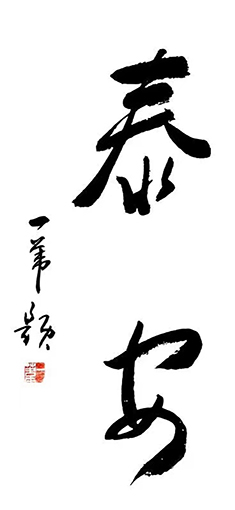 泰安
一苇题